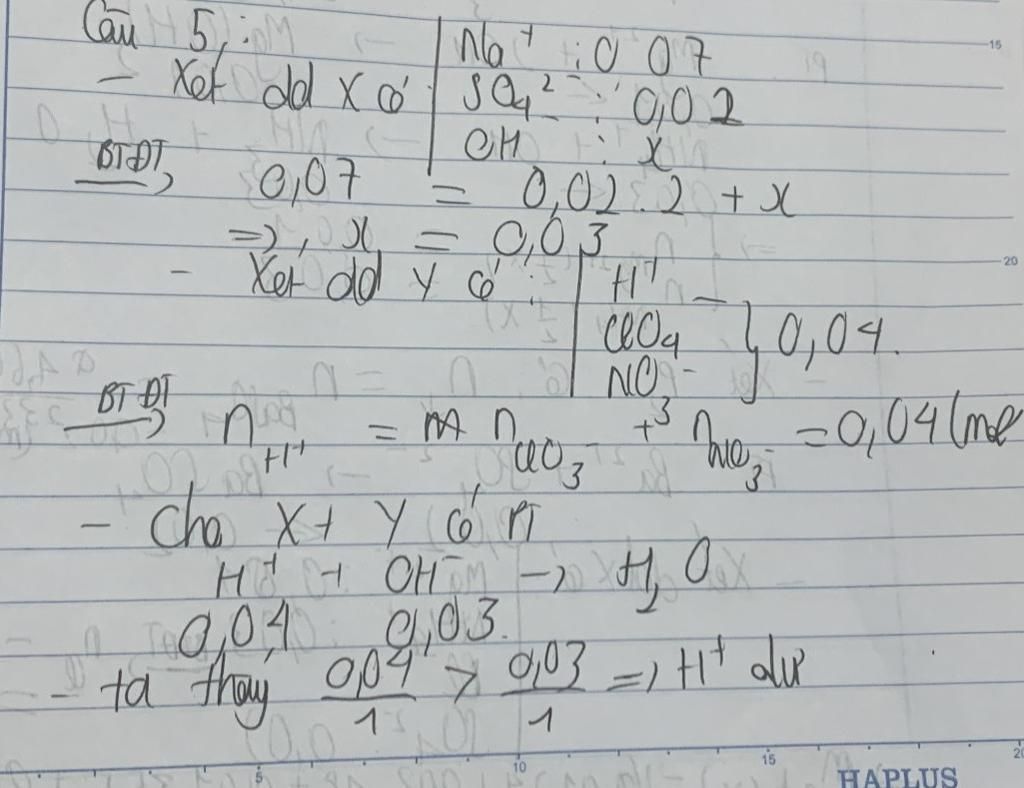 Câu 5:
- Xét dd X có | Na⁺ : 0,07
SO₄²⁻ : 0,02
OH : x
BTĐT → 0,07 = 0,02.2 + x
=> x = 0,03
- Xét dd Y có : | H⁺
ClO₄⁻
NO₃⁻ } 0,04.
BTĐT → n H⁺ = n ClO₃⁻ + n NO₃⁻ = 0,04 (mol
- Cho X + Y có Pt
H⁺ + OH⁻ → H₂O
0,04 0,03.
- ta thấy 0,04/1 > 0,03/1 => H⁺ dư
HAPLUS
15
20
5
10
15
20